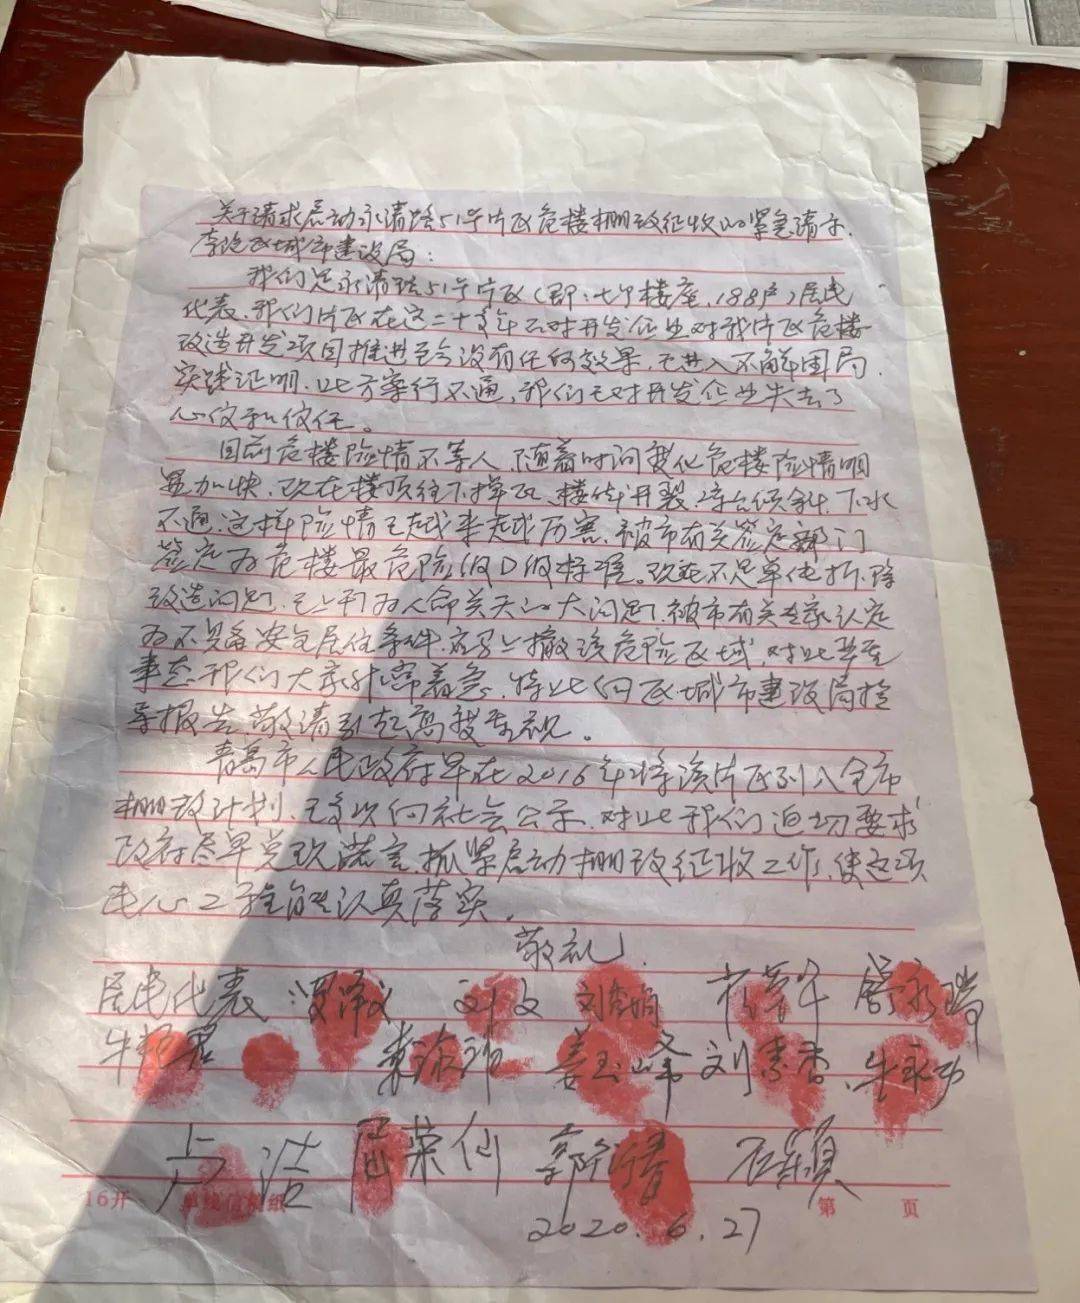 关于请求启动永清路51号片区危楼棚改征收的紧急请示
李沧区城市建设局：
我们是永清路51号片区（即：七个楼座，188户）居民
代表，我们片区在这二十多年 对开发企业对我片区危楼
改造开发项目推进至今没有任何效果，已进入不解困局，
实践证明，此方案行不通，我们已对开发企业失去了
心 和信任。
目前危楼险情不等人，随着时间变化危楼险情明
显加快，现在楼顶往下掉 、楼体开裂、 台倾斜，下水
不通，这样险情已越来越厉害，被市有关鉴定部门
鉴定为危楼最危险级D级标准。现在不是单纯拆除
改造问题，已上升为人命关天的大问题，被市有关专家认定
为不具备安全居住条件，应马上撤该危险区域，对此
事态，我们大家非常着急，特此向区城市建设局
导报告，敬请引起高度重视。
青岛市人民政府早在2016年将该片区列入全市
棚改计划，已多次向社会公示，对此我们迫切要求
政府尽早兑现诺言，抓紧启动棚改征收工作，使这项
民心工程能认真落实。
敬礼
居民代表： 刘文 刘秀娟
姜玉峰 刘素香、牛永功
卢洁 居荣仙 郭 石颖
16开 单线信纸 第 页
2020.6.27